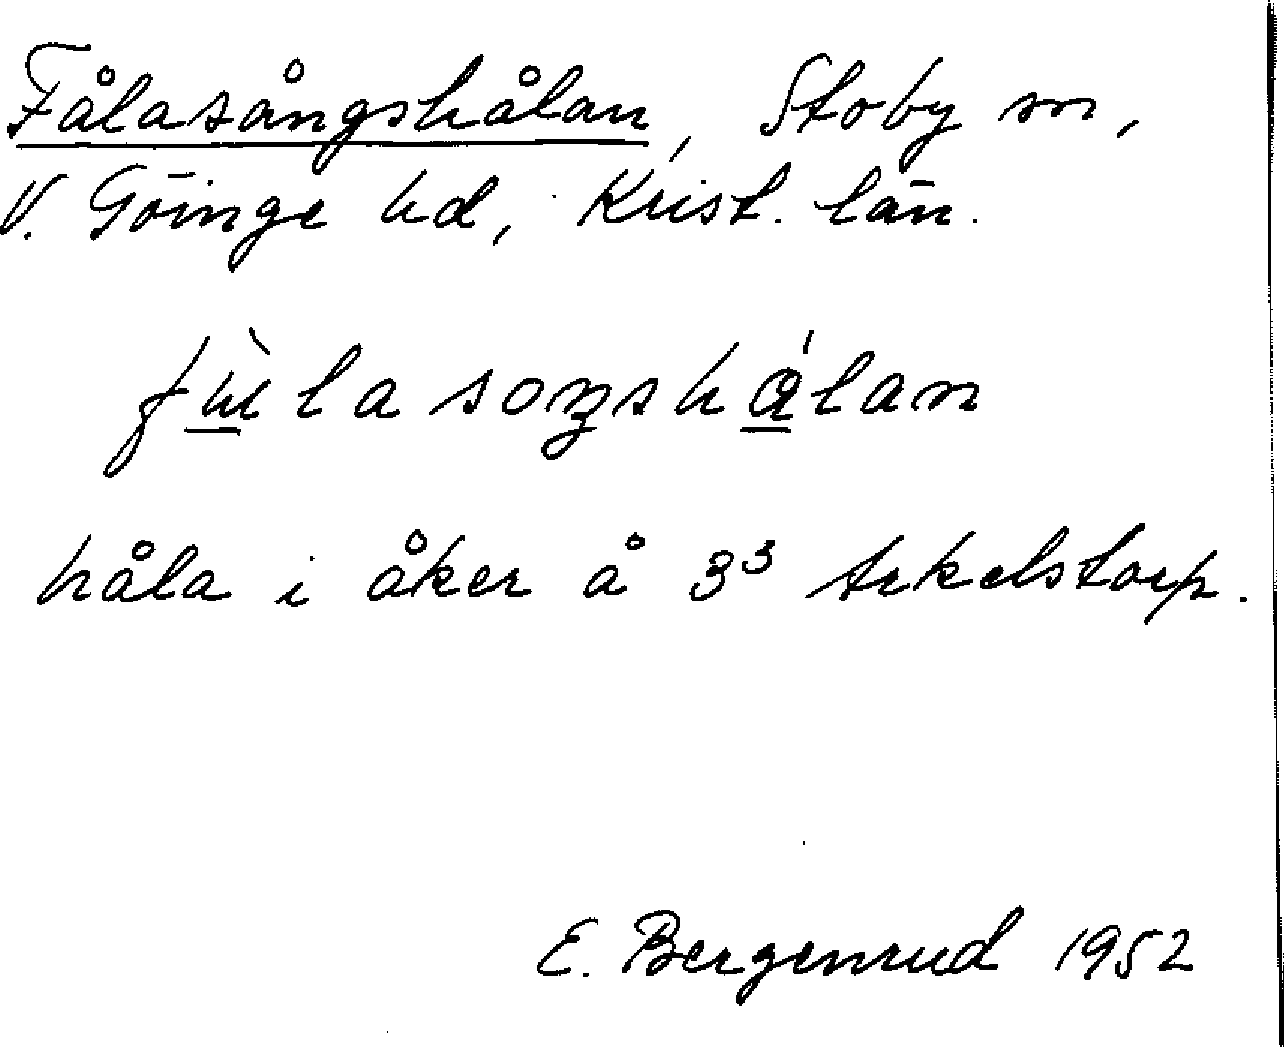 Fålasångshålan, Stoby sn,
V. Göinge hd, Krist. län.
fùlasoŋshálan
håla i åker å 3³ Arkelstorp.
E. Bergenrud 1952